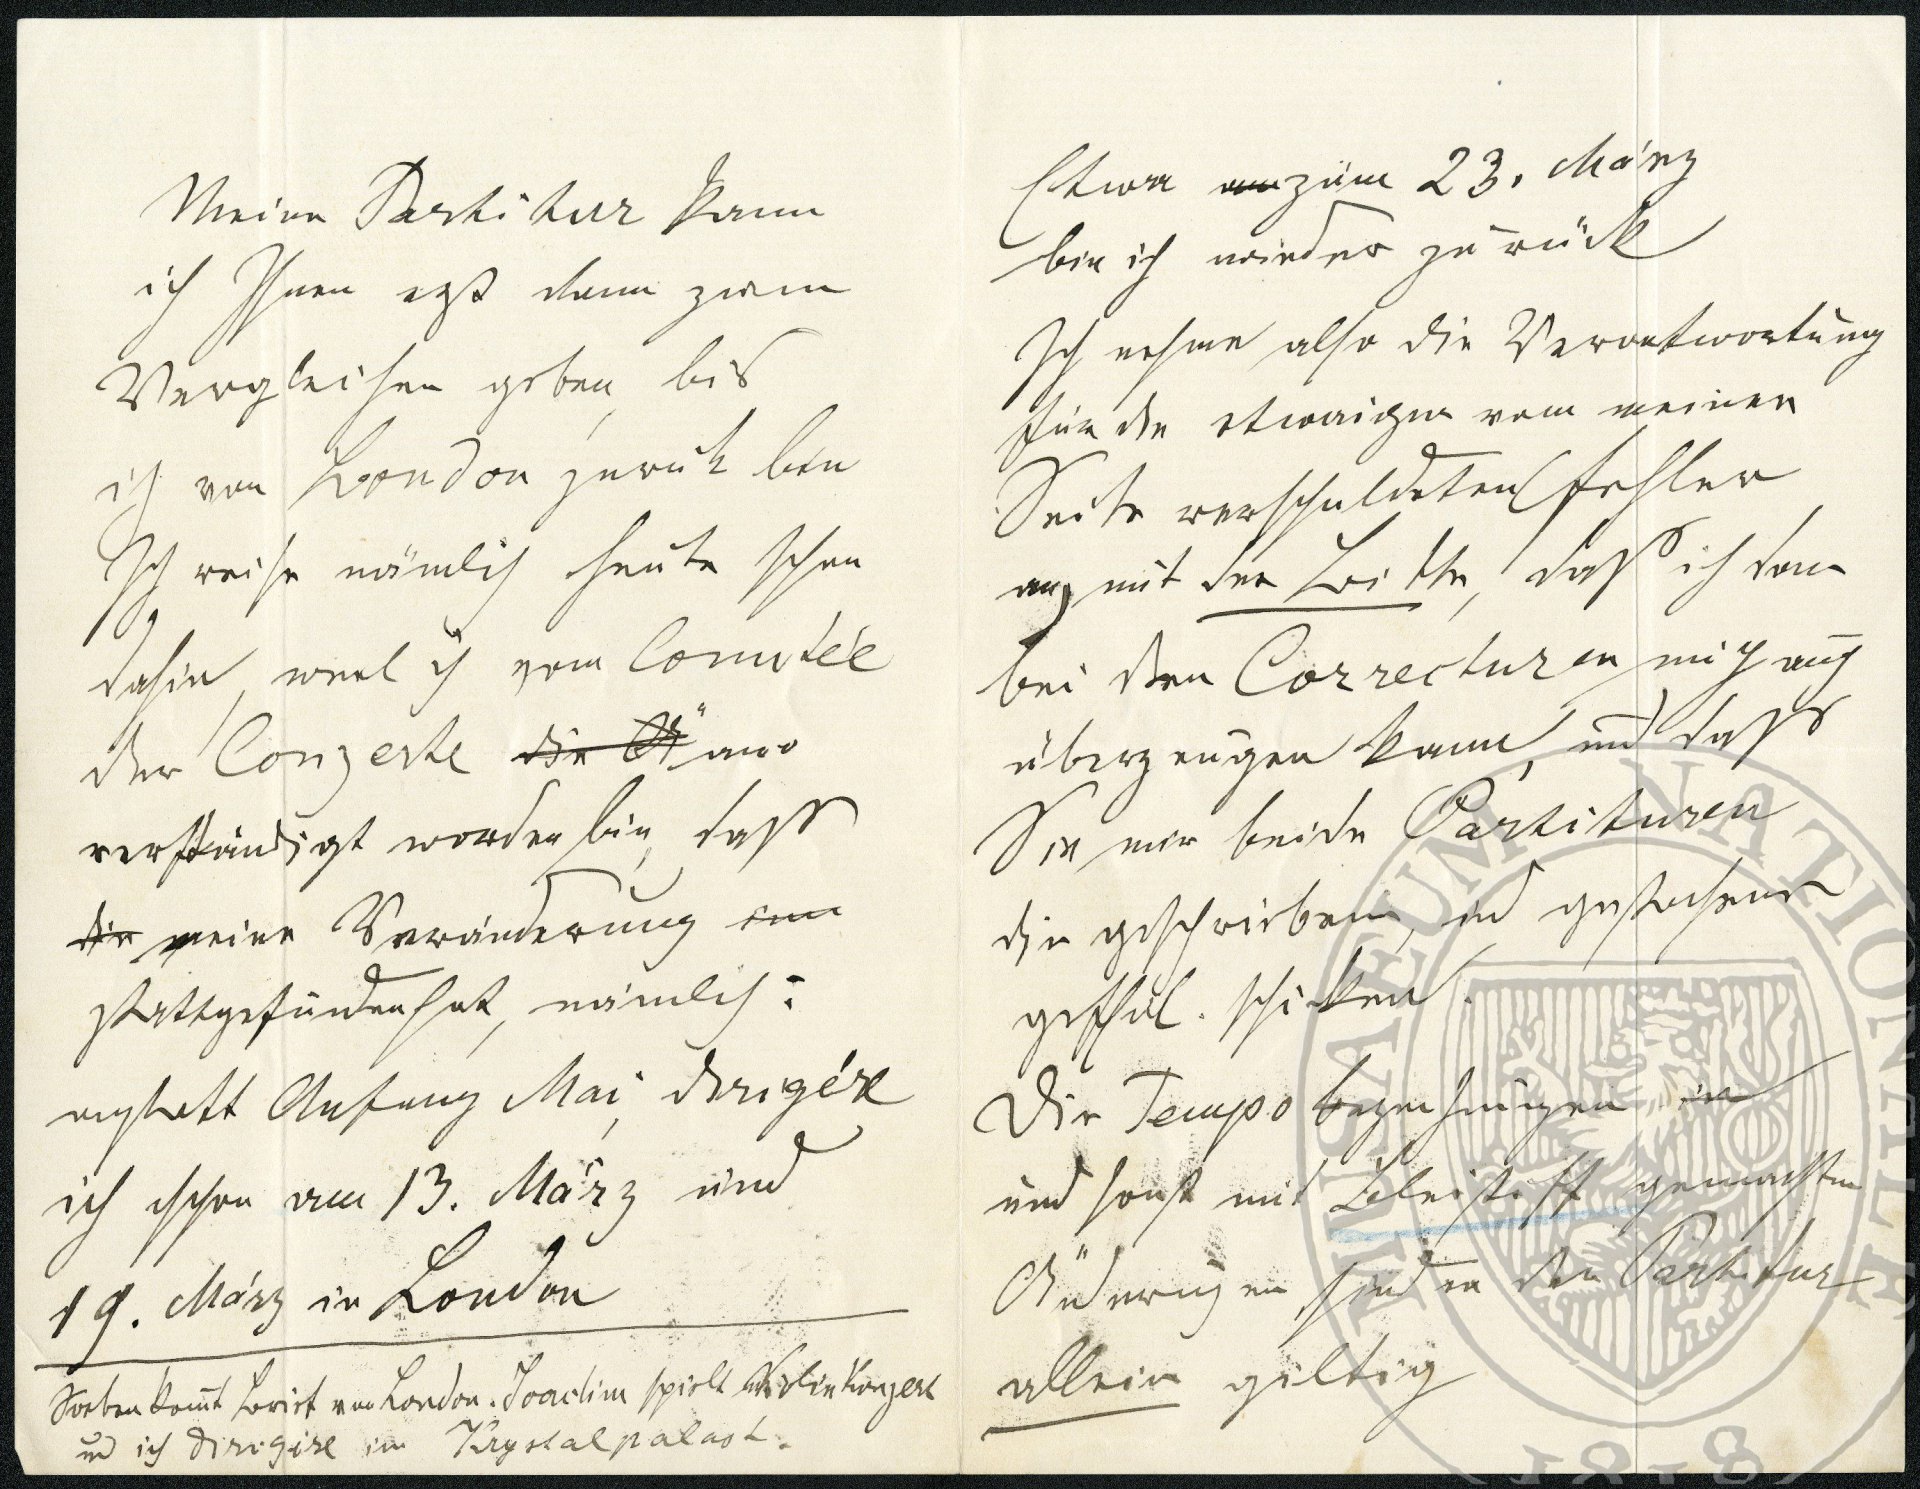 Meine Partitur kann
ich Ihnen erst dann zum
Vergleichen geben, bis
ich von London zurück bin
Ich reise nämlich heute schon
dahin, weil ich vom Comitée
der Conzerte die avi
verständigt worden bin, dass
die meine Veränderung
stattgefunden hat, nämlich:
anstatt Anfang Mai, dirigire
ich schon am 13. März und
19. März in London
Soeben kommt Brief von London. Joachim spielt Violinkonzert
und ich dirigire im Krystalpalast.
Etwa zum 23. März
bin ich wieder zurück
Ich nehme also die Verantwortung
für die etwaigen von meiner
Seite verschuldeten Fehler
an, mit der Bitte, daß ich dann
bei den Correcturen mich auch
überzeugen kann, und dass
Sie mir beide Partituren
die geschriebene, und gestochene
gefhl. schicken.
Die Tempobezeichnungen in
und sonst mit Bleistift gemachten
Änderungen sind in der Partitur
allein giltig
MUSAEUM NATIONALE
1818